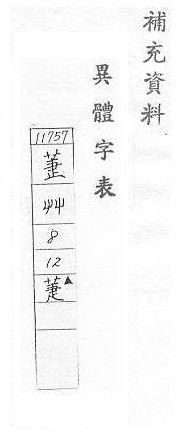 補充資料
異體字表
11757
艸
8
12
萐▲